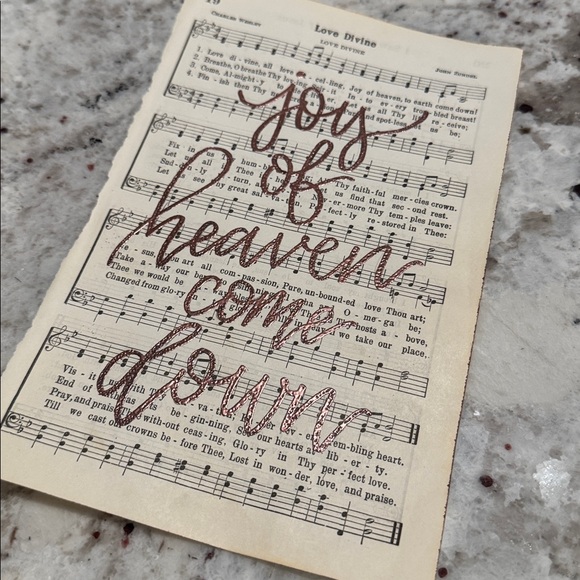 19
Love Divine
CHARLES WESLEY
LOVE DIVINE
JOHN ZUNDEL
1. Love di - vine, all love cel - ling, Joy of heaven, to earth come down!
2. Breathe, O breathe Thy lov - ing it In - to ev - ery trou - bled breast!
3. Come, Al - might - y to liv - er, Let us all Thy re - ceive;
4. Fin - ish then Thy and spot - less let us be;
joy
of
heaven
come
down
Fix in us humb Thy faith - ful mer - cies crown.
Let us all in Thee us find that sec - ond rest.
Sud - den - ly turn, nev - er - more Thy tem - ples leave:
Let us see Thy great sal - va - tion, Per - fect - ly re - stored in Thee:
sus, Thou art all com - pas - sion, Pure, un - bound - ed love Thou art;
Take a - way our O - me - ga be;
Thee we would be Thy hosts a - bove,
Changed from glo - ry heaven we take our place.
Vis - it with va trem - bling heart.
End of as its be - gin - ning, Set our hearts at lib - er - ty.
Pray, and praise without ceas - ing, Glo - ry in Thy per - fect love.
Till we cast our crowns be - fore Thee, Lost in won - der, love, and praise.